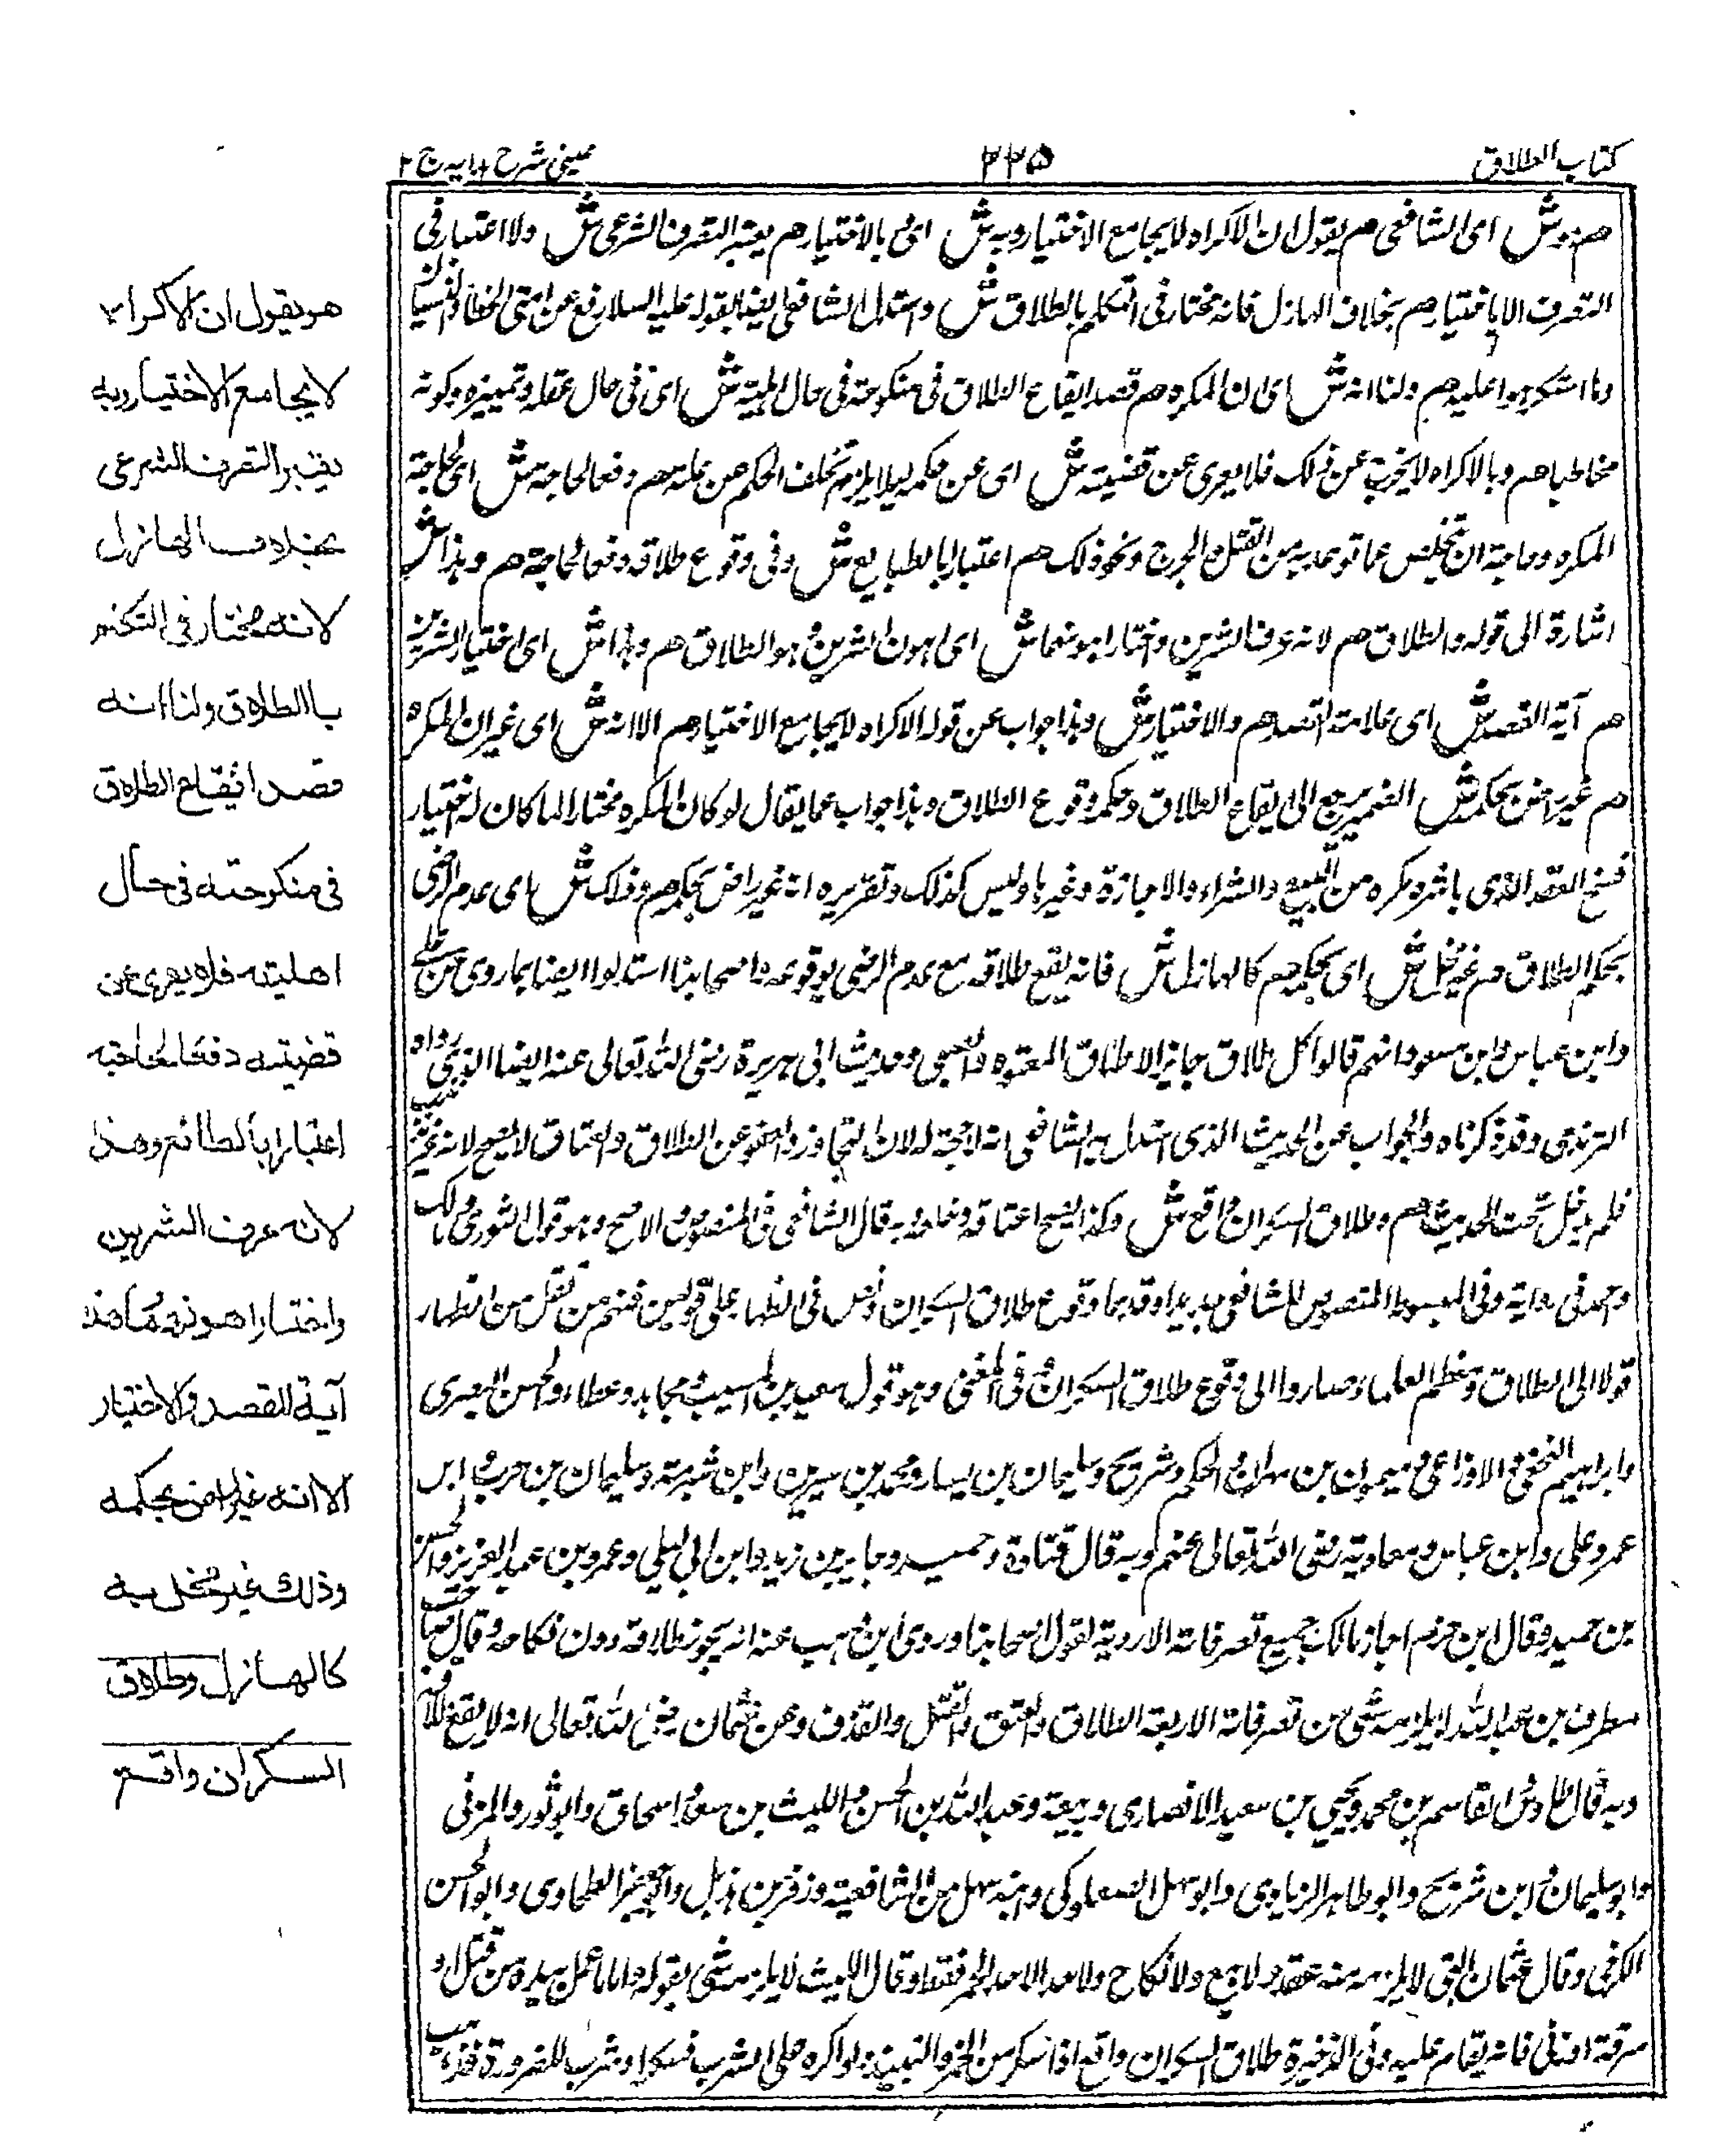 كتاب الطلاق
٢٢٥
عينى شرح هدايه ج ٢
هم هو ش اى الشافعى هم يقول ان الاكراه لا يجامع الاختيار وبه ش اى بالاختيار هم يعتبر التصرف الشرعى ش ولا اعتبار فى
التصرف الا باختيار هم بخلاف الهازل فانه مختار فى التكلم بالطلاق ش واستدل الشافعى ايضا بقوله عليه السلام رفع عن امتى الخطأ والنسيان
وما استكرهوا عليه هم ولنا انه ش اى ان المكره هم قصد ايقاع الطلاق فى منكوحته فى حال اهليته ش اى فى حال عقله وتمييزه وكونه
مخاطبا هم وبالاكراه لا يخرج عن ذلك فلا يعرى عن قضيته ش اى عن حكمه ليلا يلزم تخلف الحكم عن علته هم دفعا لحاجته ش اى لحاجة
المكره وحاجته ان يتخلص عما توعد به من القتل والجرح ونحو ذلك هم اعتبارا بالطايع ش وفى وقوع طلاقه دفعا لحاجته هم وهذا ش
اشارة الى قوله والطلاق هم لانه عرف الشرين واختار اهونهما ش اى اهون الشرين وهو الطلاق هم وهذا ش اى اختيار الشرين
هم آية القصد ش اى علامة القصد هم والاختيار ش وهذا جواب عن قوله الاكراه لا يجامع الاختيار هم الا انه ش اى غير ان المكره
هم غير راض بحكمه ش الضمير يرجع الى ايقاع الطلاق وحكمه وقوع الطلاق وهذا جواب عما يقال لو كان المكره مختارا لما كان له اختيار
فسخ العقد الذى باشره مكره من البيع والشراء والاجازة وغيرها وليس كذلك وتقريره انه غير راض بحكمه هم وذلك ش اى عدم الرضى
بحكم الطلاق هم غير مخل ش اى بحكمه هم كالهازل ش فانه يقع طلاقه مع عدم الرضى بوقوعه واصحابنا استدلوا ايضا بما روى عن على
وابن عباس وابن مسعود انهم قالوا كل طلاق جايز الا طلاق المعتوه والصبى وحديث ابى هريرة رضى الله تعالى عنه ايضا الذى رواه
الترمذى وقد ذكرناه والجواب عن الحديث الذى استدل به الشافعى انه لا حجة له لان التجاوز والعفو عن الطلاق والعتاق لا يصح لانه غير
فلم يدخل تحت الحديث هم وطلاق السكران واقع ش وكذا يصح اعتاقه وخلعه وبه قال الشافعى فى المنصوص والاصح وهو قول الثورى ومالك
واحمد فى رواية وفى المبسوط المنصوص للشافعى جديدا وقديما وقوع طلاق السكران ونص فى الظهار على قولين فمنهم من نقل من الظهار
قولا الى الطلاق ومعظم العلماء صاروا الى وقوع طلاق السكران وفى المغنى وهو قول سعيد بن المسيب ومجاهد وعطاء والحسن البصرى
وابراهيم النخعى والاوزاعى وميمون بن مهران والحكم وشريح وسليمان بن يسار ومحمد بن سيرين وابن شبرمة وسليمان بن حرب وابن
عمر وعلى وابن عباس ومعاوية رضى الله تعالى عنهم وبه قال قتادة وحميد وجابر بن زيد وابن ابى ليلى وعمر بن عبد العزيز والحسن
بن حميد وقال ابن حزم اجاز مالك جميع تصرفاته الا ردته لقول اصحابنا وروى ابن وهب عنه انه يجوز طلاقه دون نكاحه وقال
مطرف بن عبد الله لا يلزمه شئ من تصرفاته الا اربعة الطلاق والعتق والقتل والقذف وعن عثمان رضى الله تعالى انه لا يقع طلاقه
وبه قال طاوس والقاسم بن محمد ويحيى بن سعيد الانصارى وربيعة وعبد الله بن الحسن والليث بن سعد واسحاق وابو ثور والمزنى
وابو سليمان وابن شريح وابو طاهر الزيادى وابو سهل الصعلوكى وابنه سهل من الشافعية وزفر بن هذيل وابو جعفر الطحاوى وابو الحسن
الكرخى وقال عثمان البتى لا يلزمه منه عقد ولا بيع ولا نكاح ولا حد الا حد الخمر فقط وقال الليث لا يلزمه شئ بقوله واما ما عمل بيده من قتل او
سرقة او زنى فانه يقام عليه وفى الذخيرة طلاق السكران واقع اذا سكر من الخمر والنبيذ ولو اكره على الشرب فسكر او شرب للضرورة فذهب
هو يقول ان الاكراه
لا يجامع الاختيار وبه
يعتبر التصرف الشرعى
بخلاف الهازل
لانه مختار فى التكلم
باالطلاق ولنا انه
قصد ايقاع الطلاق
فى منكوحته فى حال
اهليته فلا يعرى عن
قضيته دفعا لحاجته
اعتبارا بالطائع وهذا
لانه عرف الشرين
واختار اهونهما وهذا
آية القصد والاختيار
الا انه غير راض بحكمه
وذلك غير مخل به
كالهازل وطلاق
السكران واقع